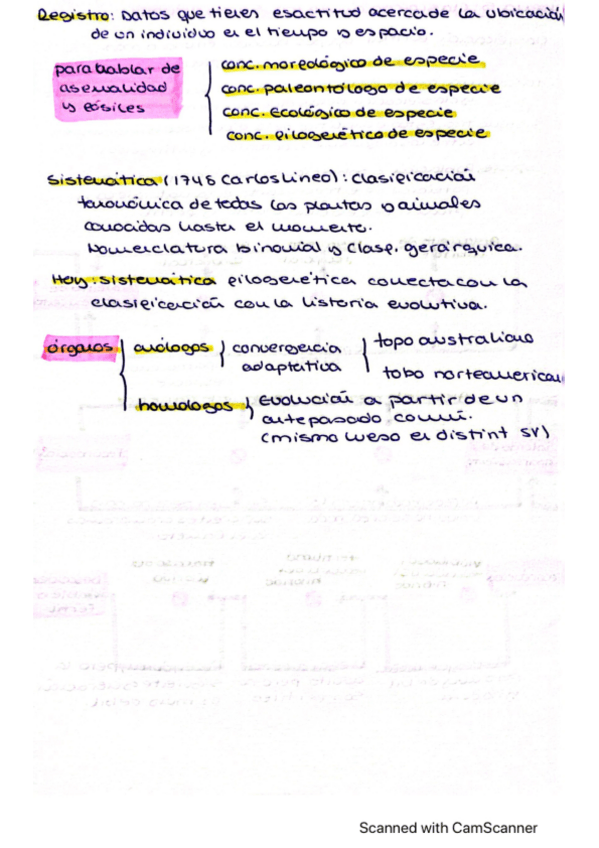 Registro: Datos que tienen exactitud acerca de la ubicación
de un individuo en el tiempo y espacio.
para hablar de
asexualidad
y fósiles
conc. morfológico de especie
conc. paleontólogo de especie
conc. Ecológico de especie
conc. filogenético de especie
Sistemática (1748 Carlos Lineo): clasificación
taxonómica de todas las plantas y animales
conocidas hasta el momento.
Nomenclatura binomial y clasf. gerárquica.
Hoy: sistemática filogenética conecta con la
clasificación con la historia evolutiva.
órganos
análogos
convergencia
adaptativa
topo australiano
topo norteamerican
homologos
Evolución a partir de un
antepasado común.
(mismo hueso en distint sv)
Scanned with CamScanner